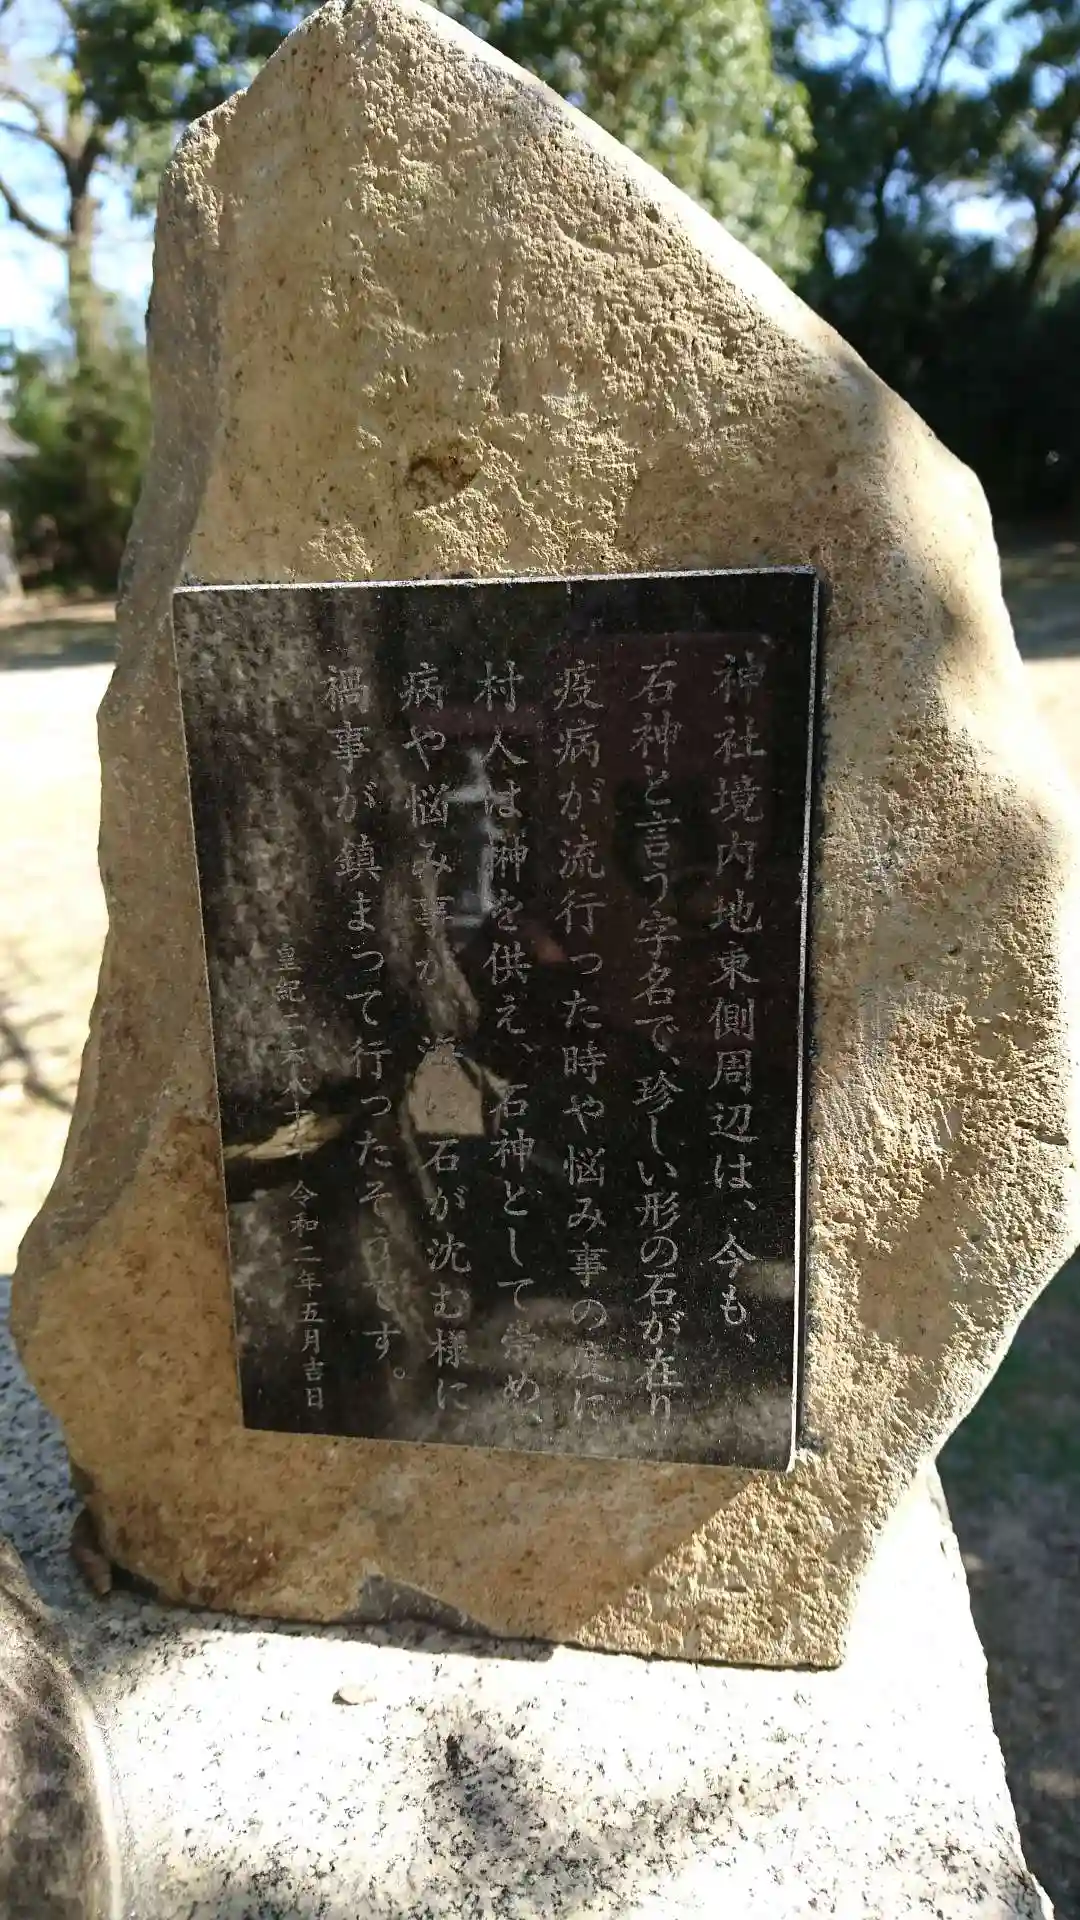 神社境内地東側周辺は、今も、
石神と言う字名で、珍しい形の石が在り
疫病が流行った時や悩み事の度に
村人は榊を供え、石神として崇め、
病や悩み事が 海に石が沈む様に
禍事が鎮まって行ったそうです。
皇紀二六八十年 令和二年五月吉日